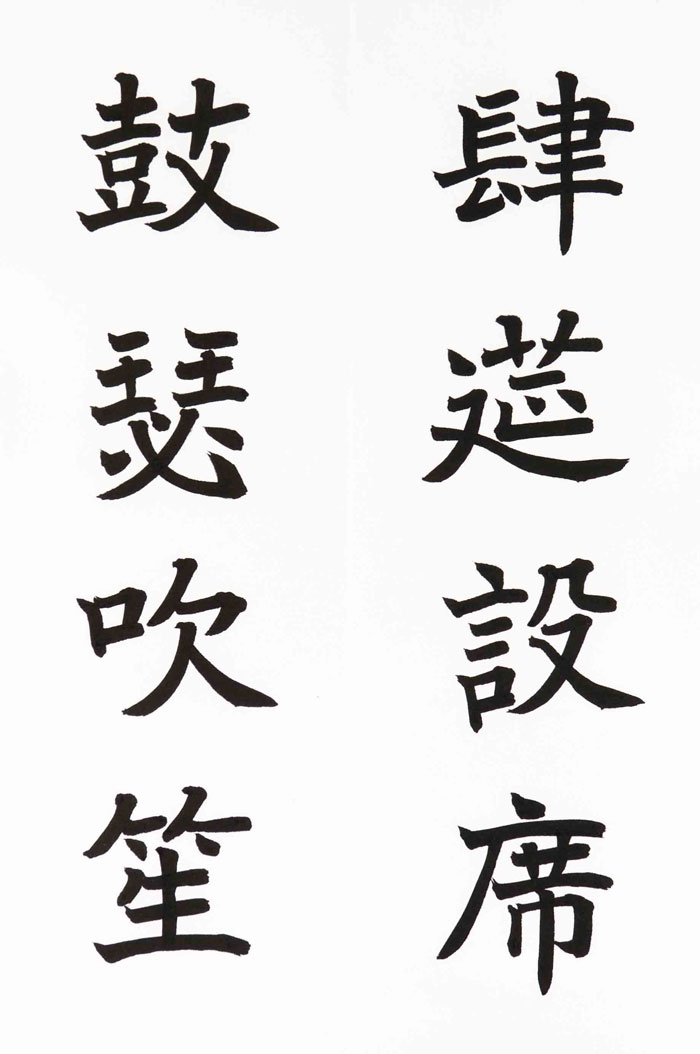 肆莚設席
鼓瑟吹笙